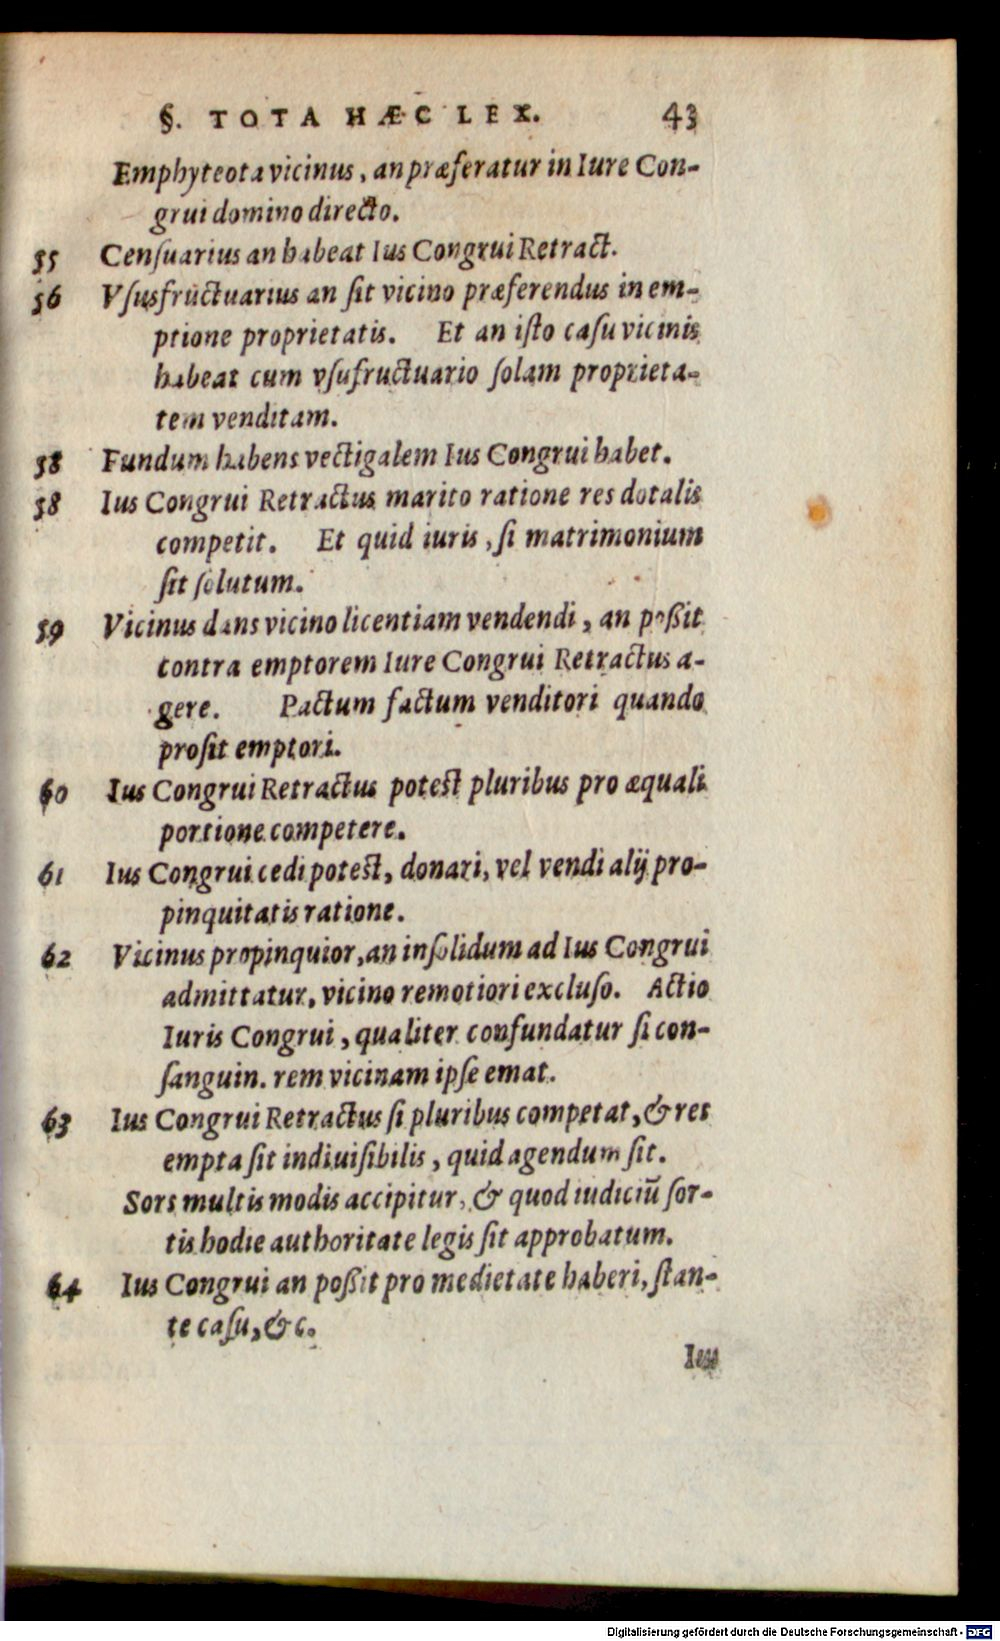 §. TOTA HÆC LEX. 43
Emphyteota vicinus, an præferatur in Iure Con-
grui domino directo.
55 Cenſuarius an habeat Ius Congrui Retract.
56 Vſusfructuarius an ſit vicino præferendus in em-
ptione proprietatis. Et an iſto caſu vicinis
habeat cum vſufructuario ſolam proprieta-
tem venditam.
58 Fundum habens vectigalem Ius Congrui habet.
58 Ius Congrui Retractus marito ratione res dotalis
competit. Et quid iuris, ſi matrimonium
ſit ſolutum.
59 Vicinus dans vicino licentiam vendendi, an poßit
contra emptorem Iure Congrui Retractus a-
gere. Pactum factum venditori quando
proſit emptori.
60 Ius Congrui Retractus potest pluribus pro æquali
portione competere.
61 Ius Congrui cedi potest, donari, vel vendi alij pro-
pinquitatis ratione.
62 Vicinus propinquior, an inſolidum ad Ius Congrui
admittatur, vicino remotiori excluſo. Actio
Iuris Congrui, qualiter confundatur ſi con-
ſanguin. rem vicinam ipſe emat.
63 Ius Congrui Retractus ſi pluribus competat, & res
empta ſit indiuiſibilis, quid agendum ſit.
Sors multis modis accipitur, & quod iudiciũ ſor-
tis hodie authoritate legis ſit approbatum.
64 Ius Congrui an poßit pro medietate haberi, ſtan-
te caſu, &c.
Digitalisierung gefördert durch die Deutsche Forschungsgemeinschaft - DFG